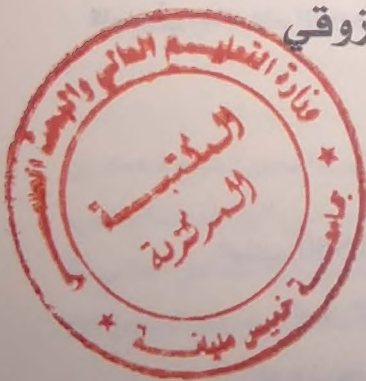 زوقي
وزارة التعليم العالي والبحث العلمي
المكتبة
المركزية
جامعة خميس مليانة